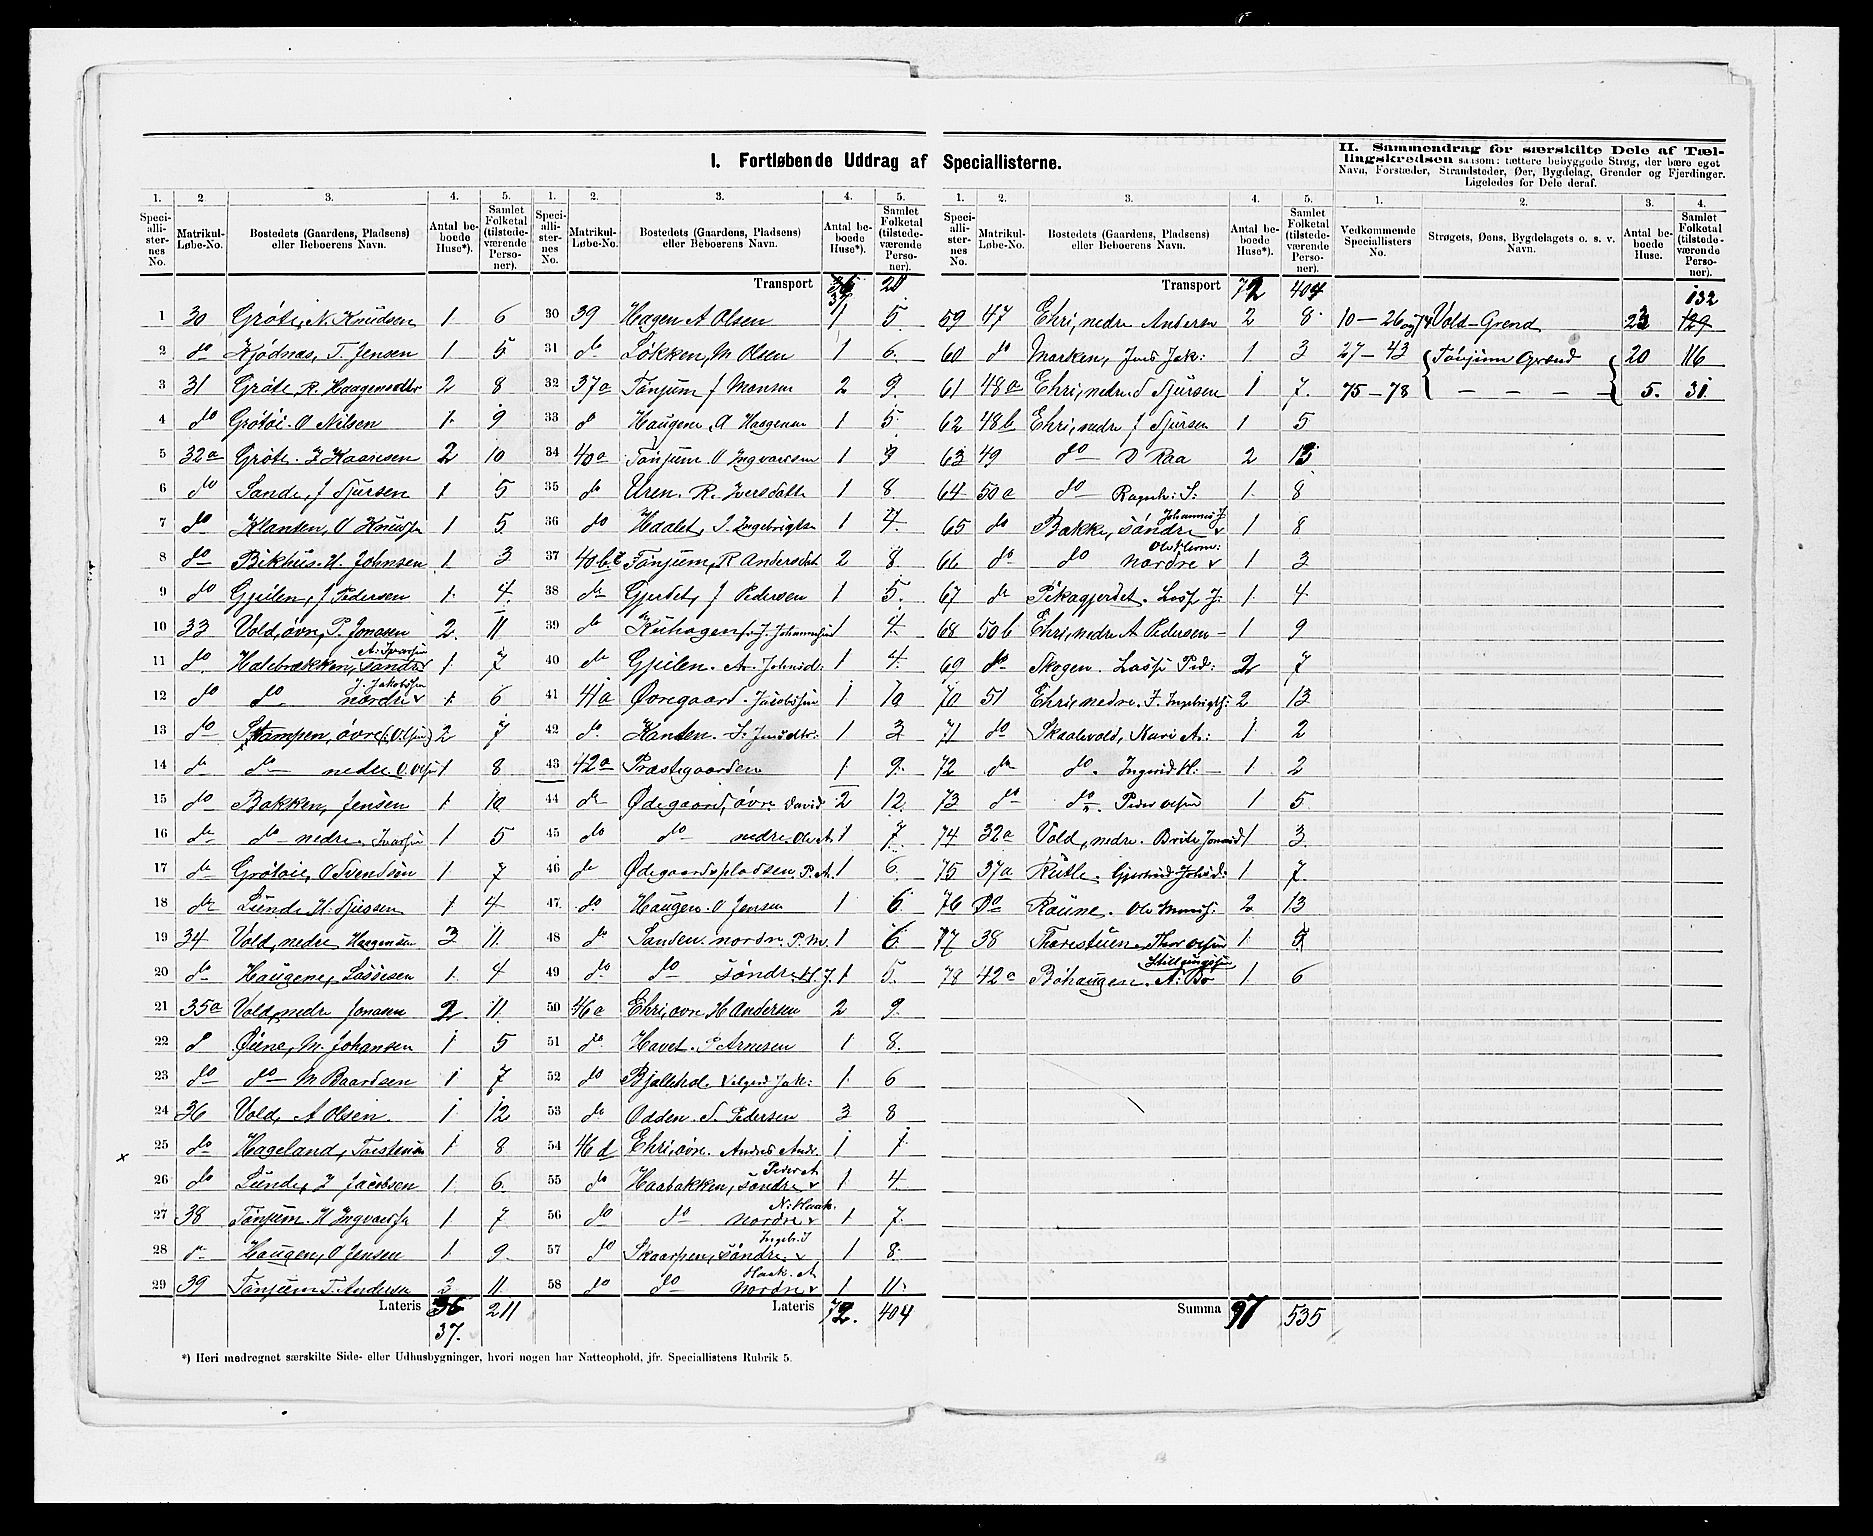 I. Fortløbende Uddrag af Speciallisterne.
II. Sammendrag for særskilte Dele af Tællingskredsen saasom: tættere bebyggede Strøg, der bære eget
Navn, Forstæder, Strandsteder, Øer, Bygdelag, Grender og Fjerdinger.
Ligeledes for Dele deraf.
1. 2. 3. 4. 5. 1. 2. 3. 4. 5. 1. 2. 3. 4. 5. 1. 2. 3. 4.
Speciallisternes No. Matrikul-Løbe-No. Bostedets (Gaardens, Pladsens) eller Beboerens Navn. Antal beboede Huse*). Samlet Folketal (tilstedeværende Personer).
Speciallisternes No. Matrikul-Løbe-No. Bostedets (Gaardens, Pladsens) eller Beboerens Navn. Antal beboede Huse*). Samlet Folketal (tilstedeværende Personer).
Speciallisternes No. Matrikul-Løbe-No. Bostedets (Gaardens, Pladsens) eller Beboerens Navn. Antal beboede Huse*). Samlet Folketal (tilstedeværende Personer).
Vedkommende Speciallisters No. Strøgets, Øens, Bygdelagets o. s. v. Navn. Antal beboede Huse. Samlet Folketal (tilstedeværende Personer).
1 30 Grøte, N. Knudsen 1 6
2 do Kjødnas, T. Jensen 1 5
3 31 Grøte R. 2 8
4 do Grøtøi. O Nilsen 1 9
5 32a Grøte. I Kaaresen 2 10
6 do Sande, J Sjursen 1 5
7 do Klanten, O Knuds 1 5
8 do Bikhus. H. Johnsen 1 3
9 do Gjeilen, J Pedersen 1 4
10 33 Vold, øvre, P. Jonasen 2 11
11 do Halebrækken, søndre A. Ivarsen 1 7
12 do do nordre J. Jakobsen 1 6
13 do Stampen, øvre (O. Olsen) 2 7
14 do do nedre. O. Olsen 1 8
15 do Bakken, Jensen 1 10
16 do do nedre, Ivarsen 1 5
17 do Grøtøie, O Svendsen 1 7
18 do Lunde H. Sjursen 1 4
19 34 Vold, nedre Haagensen 3 11
20 do Haugene, Lassesen 1 4
21 35a Vold, nedre Jonasen 2 11
22 d Øiene, M. Johansen 1 5
23 do do M Baardsen 1 7
24 36 Vold, A Olsen 1 12
25 do Hageland, Torstensen 1 8
26 do Lunde, I Jacobsen 1 6
27 38 Tønjum. H Ingvards 1 7
28 do Haugen, O Jensen 1 9
29 39 Tønjum T. Andersen 3 11
Lateris 36 211
37.
Transport 36 211
37
30 39 Hagen A Olsen 1 5
31 do Løkken, M Olsen 1 6
32 37a Tønjum J Monsen 2 9
33 d Haugene, A Haagensen 1 5
34 40a Tønjum O Ingvardsen 1 9
35 do Uren. R. Iversdatter 1 8
36 do Haalet, I. Ingebrigtsen 1 4
37 40b,c Tønjum, R Andersdat 2 8
38 do Gjerdet, J Pedersen 1 5
39 do Kuhagen J. Johannesen 1 4
40 do Gjeilen. A. Johnsd: 1 4
41 41a Øvregaard. Jacobsen 1 10
42 do Kanten. 1 3
43 42a Præstegaarden 1 9
44 do Ødegaard, øvre David 2 12
45 do do nedre Ole A. 1 7
46 do Ødegaardspladsen. P. A. 1 6
47 do Haugen. O Jensen 1 6
48 do Sanden. nordre. P. M. 1 6
49 do do søndre. H. J. 1 5
50 46a Ehri, øvre H Andersen 2 9
51 do Havet. P Arnesen 1 8
52 do Jak: 1 6
53 do Odden. S. Pedersen 3 8
54 46d Ehri, øvre. Anders Andr. 1 1
55 do Haabakken, søndre Peder A 1 4
56 do do nordre N: Haak. 1 7
57 do Skaarpen, søndre. Ingeb. I 1 8
58 do do Nordre Haak. A 1 11
Lateris 72. 404
Transport 72 404
59 47 Ehri, nedre Andersn 2 8
60 do Marken, Jens Jak: 1 3
61 48a Ehri, nedre Sjursen 1 7
62 48b Ehri, nedre J Sjursen 1 5
63 49 do O Raa 2 13
64 50a do Ragnh: S: 1 8
65 do Bakke, søndre Johannes J. 1 8
66 do do nordre 1 3
67 do Pikagjerdet. Lasse J. 1 4
68 50b Ehri, nedre A Pedersen 1 9
69 do Skogen. Lasse Ped: 2 7
70 51 Ehri, nedre. J. Ingebrigts: 2 13
71 do Skaalevold, Kari A: 1 2
72 do do. Ingrid H: 1 2
73 do do. Peder Olsen 1 5
74 32a Vold, nedre. Brite 1 3
75 37a Rutle. Gjertrud 1 7
76 Do Raune. Ole Mons: 2 13
77 38 Tharestuen. Thor Olsen 1 5
78 42a Bøhaugen. A: Bø 1 6
Summa 97 535
132
10–26 og 74 Vold-Grend 23 129
27–43 Tønjum Grend 20 116
75–78 – – – – 5. 31
*) Heri medregnet særskilte Side- eller Udhusbygninger, hvori nogen har Natteophold, jfr. Speciallistens Rubrik 5.